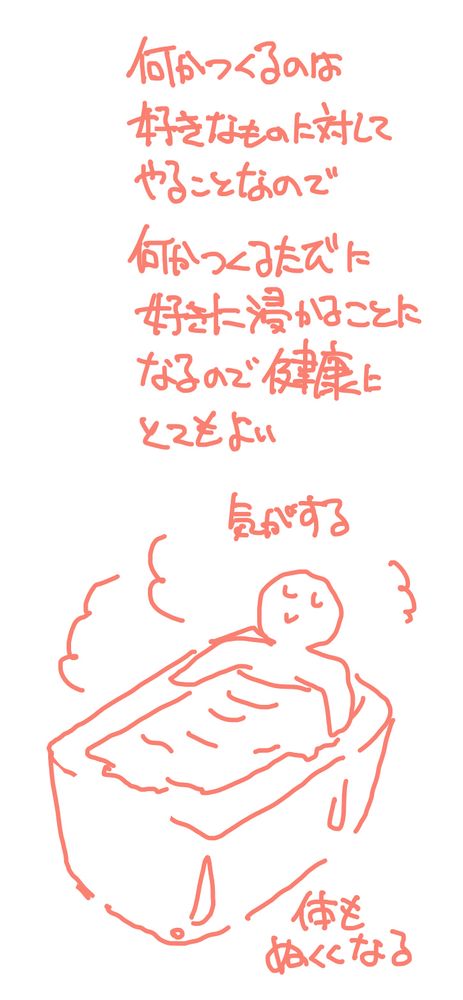 何かつくるのは
好きなものに対して
やることなので
何かつくるたびに
好きに浸かることに
なるので健康に
とてもよい
気がする
体も
ぬくくなる